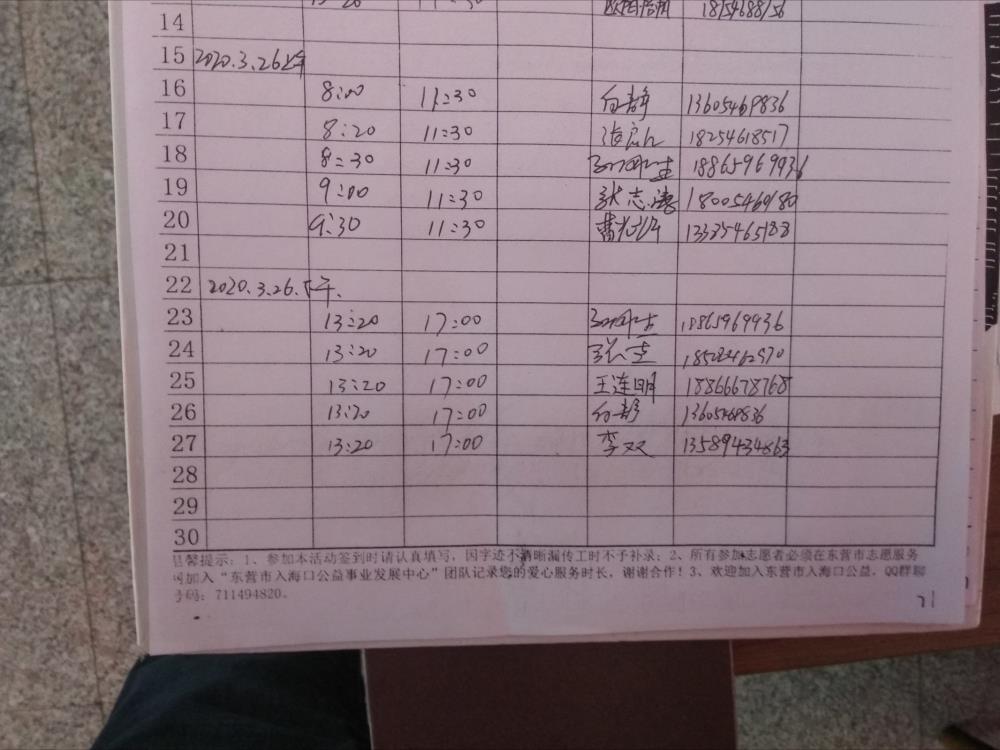 14
15 2020.3.26上午
16 8:00 11:30 白静 13605469836
17 8:20 11:30 18254618517
18 8:30 11:30 18865969936
19 9:00 11:30 张志涛 18005469180
20 9:30 11:30
21
22 2020.3.26.下午.
23 13:20 17:00 18865969936
24 13:20 17:00
25 13:20 17:00 王连明 18866678768
26 13:20 17:00 白静
27 13:20 17:00 李双 13589434863
28
29
30
馨提示：1、参加本活动签到时请认真填写，因字迹不清晰漏传工时不予补录；2、所有参加志愿者必须在东营市志愿服务
加入“东营市入海口公益事业发展中心”团队记录您的爱心服务时长，谢谢合作！3、欢迎加入东营市入海口公益，QQ群聊
号码：711494820。
71